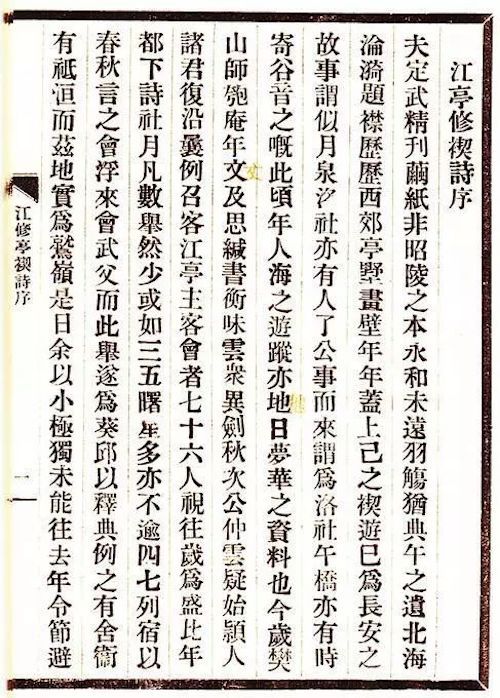 江亭修禊詩序
夫定武精刊繭紙非昭陵之本永和未遠羽觴猶典午之遺北海
淪漪題襟歷歷西郊亭墅畫壁年年蓋上己之禊遊巳爲長安之
故事謂似月泉汐社亦有人了公事而來謂爲洛社午橋亦有時
寄谷音之嘅此頃年人海之遊蹤亦地日夢華之資料也今歲樊
山師匏庵年文及思緘書衡味雲衆異劍秋次公仲雲疑始穎人
丈
諸君復沿曩例召客江亭主客會者七十六人視往歲爲盛比年
都下詩社月凡數舉然少或如三五曙星多亦不逾四七列宿以
春秋言之會浮來會武父而此舉遂爲葵邱以釋典例之有舍衞
有祗洹而茲地實爲鷲嶺是日余以小極獨未能往去年令節避
江修亭禊詩序
一